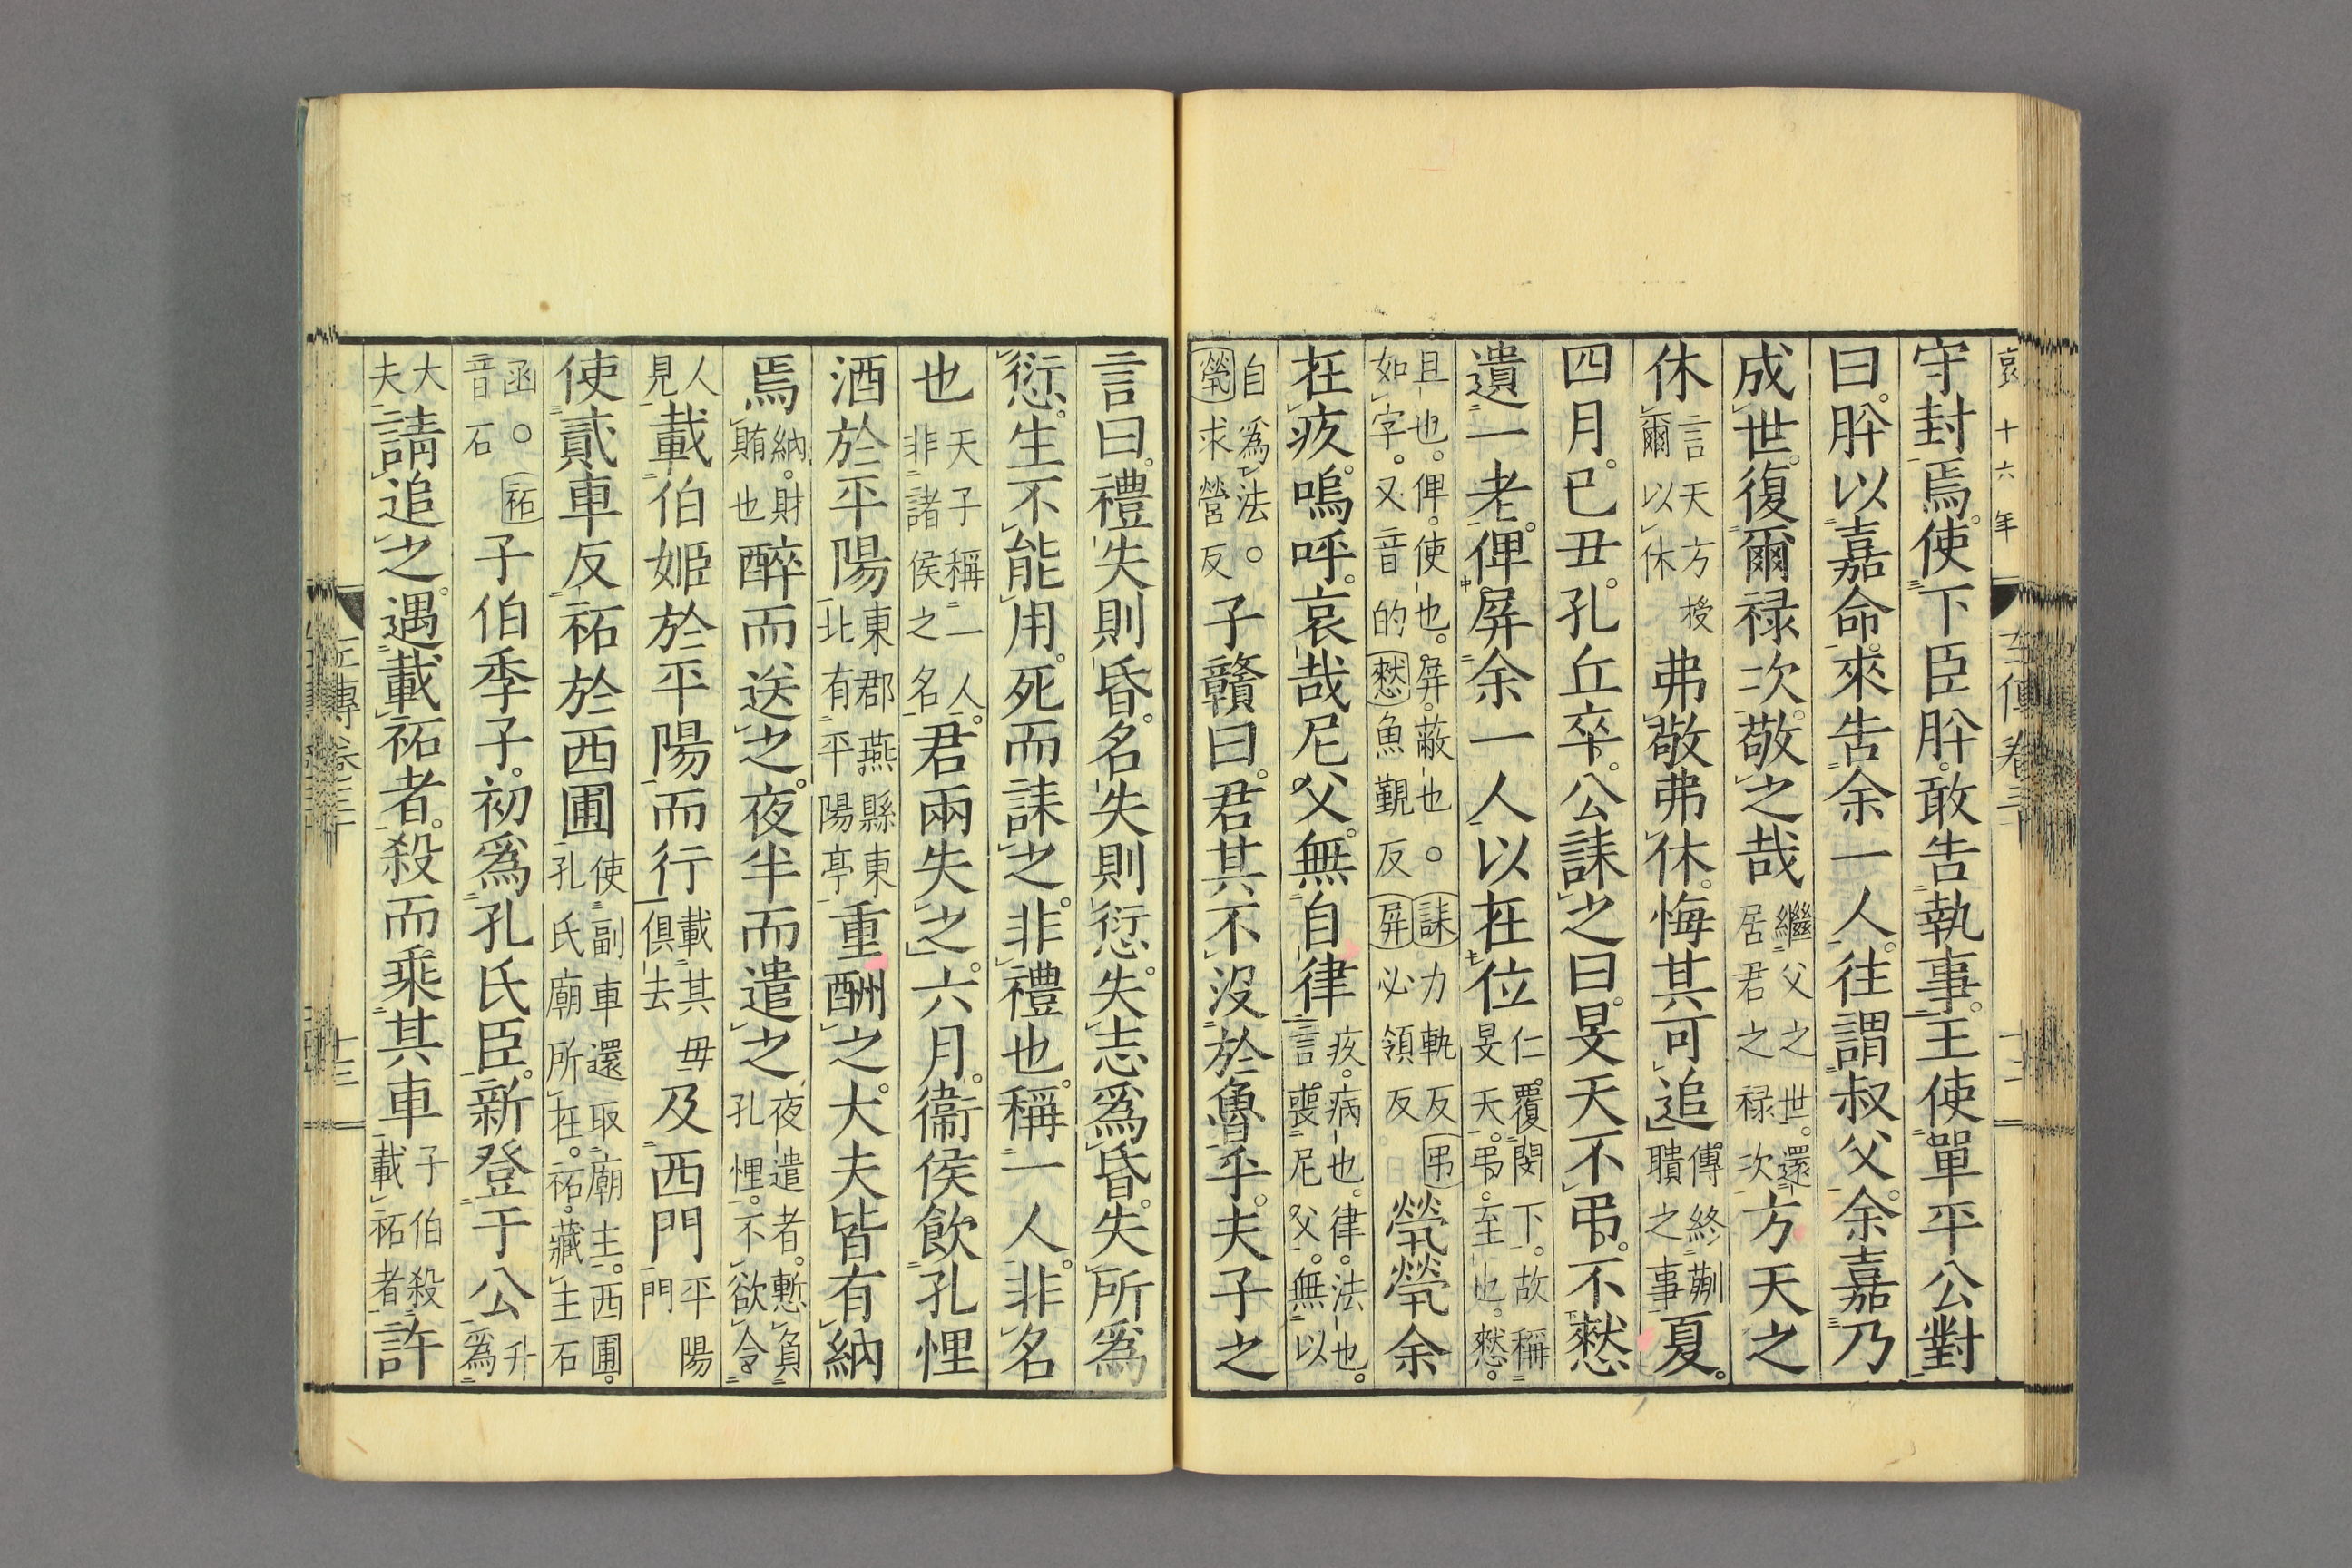 哀十六年　左傳卷三十　十二
守封焉。使下臣肸。敢告執事。王使單平公對
曰。肸以嘉命。來告余一人。往謂叔父。余嘉乃
成世。復爾祿次。敬之哉繼父之世。還居君之祿次方天之
休言天方授爾以休弗敬弗休。悔其可追傳終蒯聵之事夏。
四月。己丑。孔丘卒。公誄之曰。旻天不弔。不憖
遺一老。俾屏余一人以在位仁覆閔下。故稱旻天。弔。至也。憖。
且也。俾。使也。屏。蔽也。○誄力軌反弔如字。又音的憖魚覲反屏必領反煢煢余
在疚。嗚呼。哀哉尼父。無自律疚。病也。律。法也。言喪尼父。無以
自爲法。○煢求營反子贛曰。君其不沒於魯乎。夫子之
言曰。禮失則昏。名失則愆。失志爲昏。失所爲
愆。生不能用。死而誄之。非禮也。稱一人。非名
也天子稱一人。非諸侯之名君兩失之。六月。衞侯飲孔悝
酒於平陽東郡燕縣東北有平陽亭重酬之。大夫皆有納
焉納。財賄也醉而送之。夜半而遣之夜遣者。慙負孔悝。不欲令
人見載伯姬於平陽而行載其母俱去及西門平陽門
使貳車反祏於西圃使副車還取廟主。西圃。孔氏廟所在。祏。藏主石
函。○祏音石子伯季子。初爲孔氏臣。新登于公升爲
大夫請追之。遇載祏者。殺而乘其車子伯殺載祏者許
左傳卷三十　十三